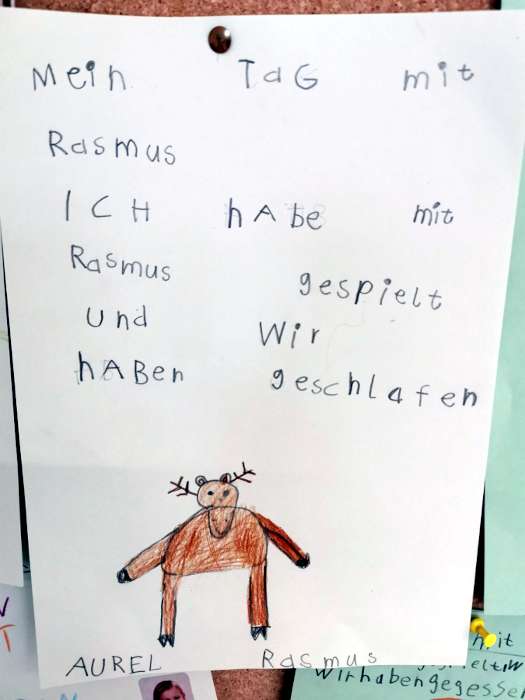 Mein TaG mit
Rasmus
ICH hAbe mit
Rasmus gespielt
und Wir
hABen geschlafen
AUREL Rasmus
mit
wirhabengegessen